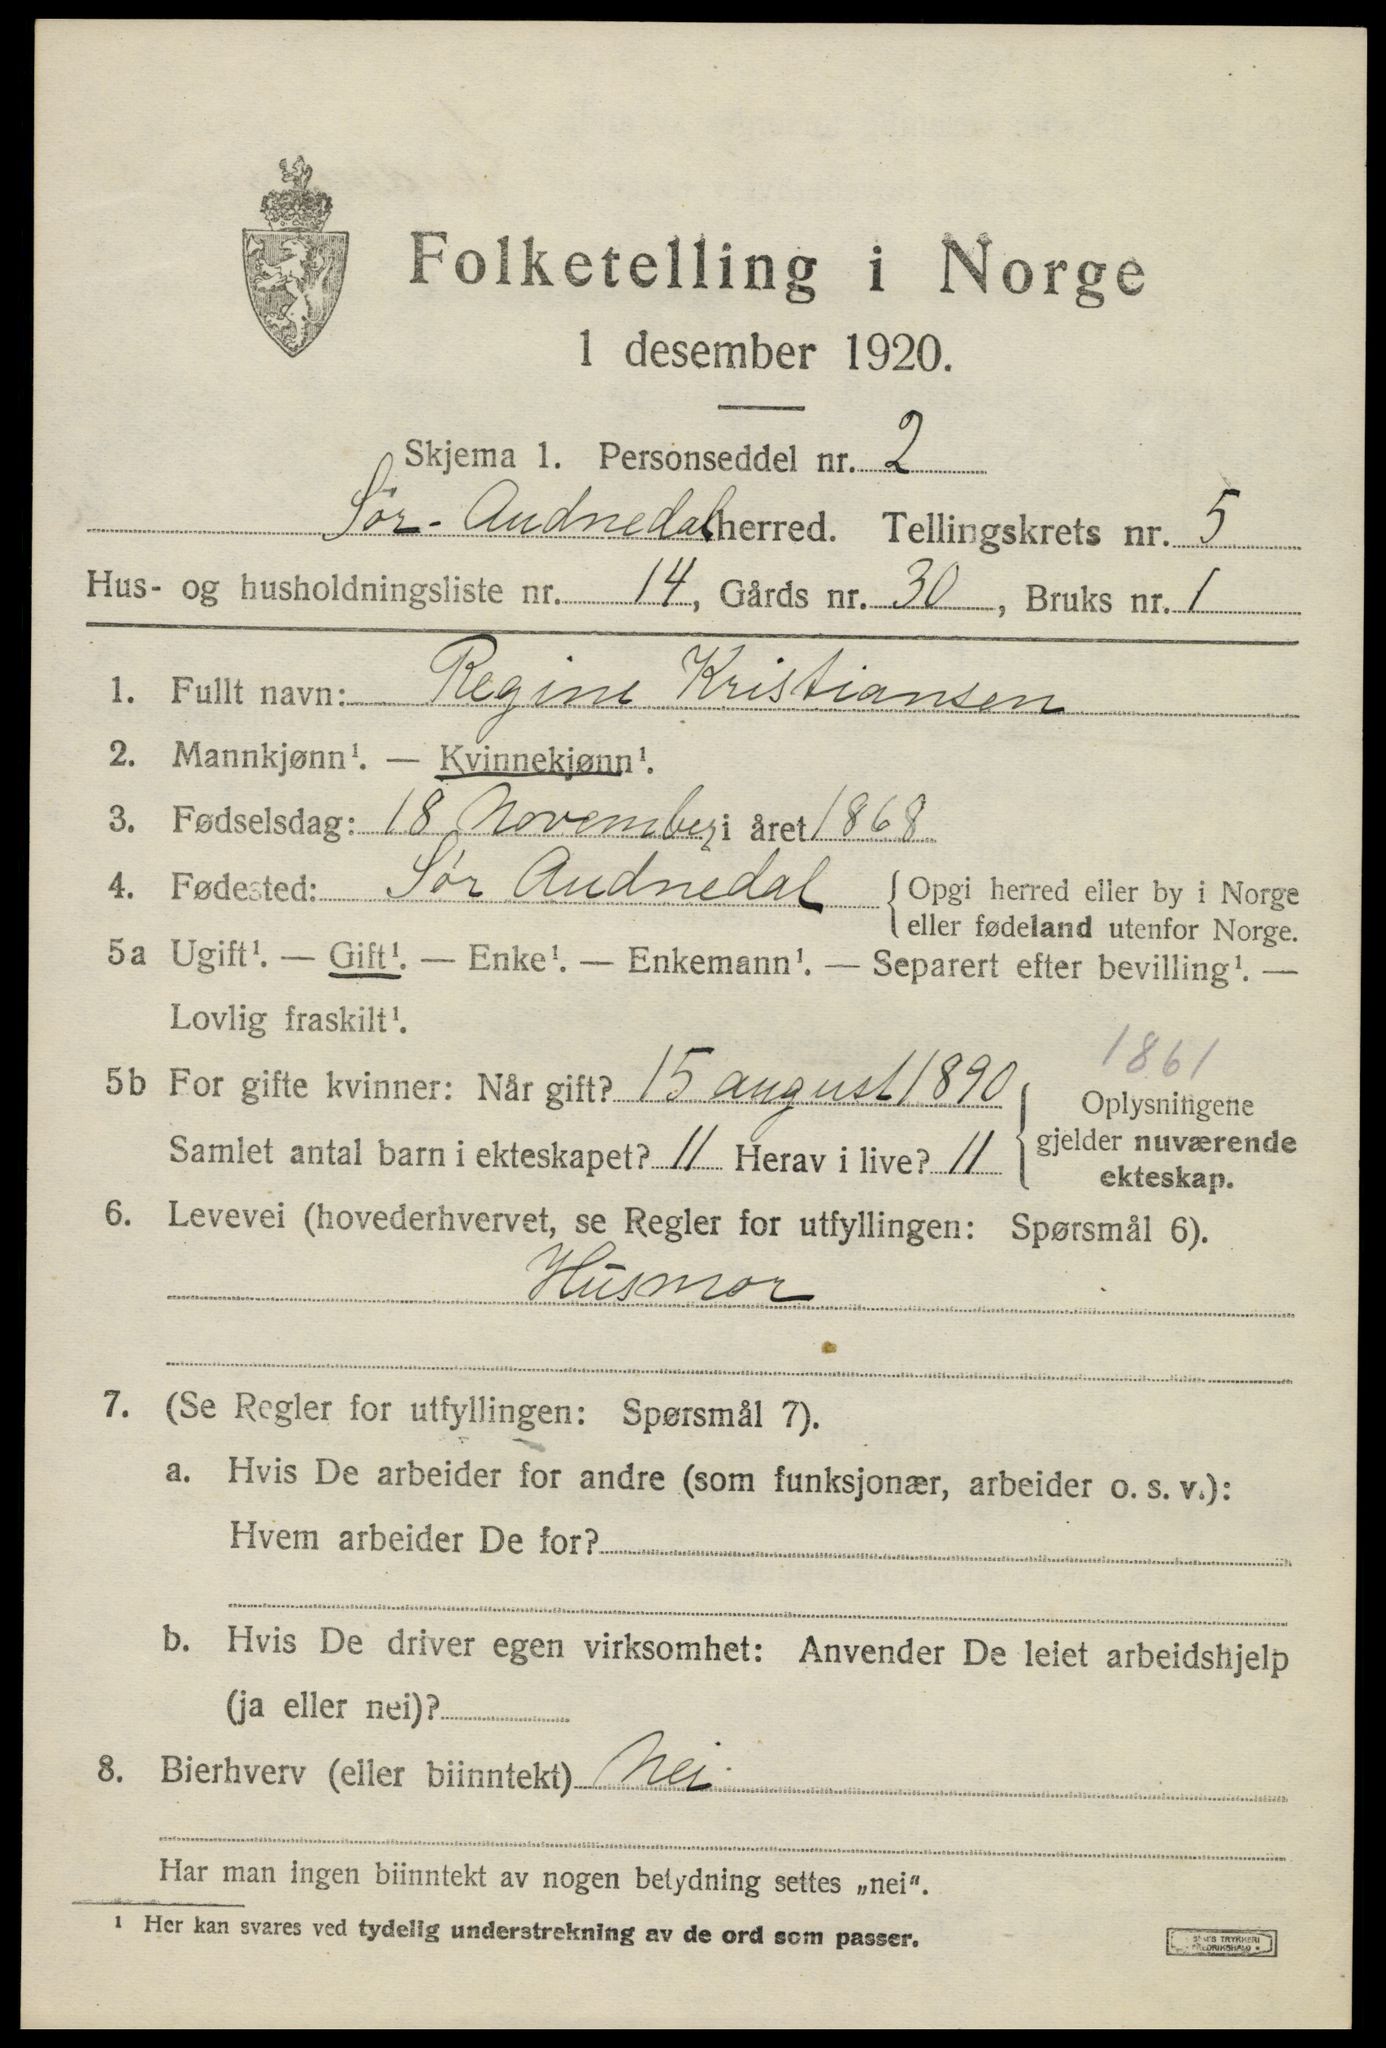 Folketelling i Norge
1 desember 1920.
Skjema 1. Personseddel nr. 2
Sør-Audnedal herred. Tellingskrets nr. 5
Hus- og husholdningsliste nr. 14, Gårds nr. 30, Bruks nr. 1
1. Fullt navn: Regine Kristiansen
2. Mannkjønn¹. — Kvinnekjønn¹.
3. Fødselsdag: 18 November i året 1868
4. Fødested: Sør Audnedal { Opgi herred eller by i Norge
eller fødeland utenfor Norge.
5a Ugift¹. — Gift¹. — Enke¹. — Enkemann¹. — Separert efter bevilling¹. —
Lovlig fraskilt¹.
1861
5b For gifte kvinner: Når gift? 15 august 1890
Samlet antal barn i ekteskapet? 11 Herav i live? 11
{ Oplysningene
gjelder nuværende
ekteskap.
6. Levevei (hovederhvervet, se Regler for utfyllingen: Spørsmål 6).
Husmor
7. (Se Regler for utfyllingen: Spørsmål 7).
a. Hvis De arbeider for andre (som funksjonær, arbeider o. s. v.):
Hvem arbeider De for?
b. Hvis De driver egen virksomhet: Anvender De leiet arbeidshjelp
(ja eller nei)?
8. Bierhverv (eller biinntekt) Nei
Har man ingen biinntekt av nogen betydning settes „nei".
¹ Her kan svares ved tydelig understrekning av de ord som passer.
TRYKKERI
FREDRIKSHALD